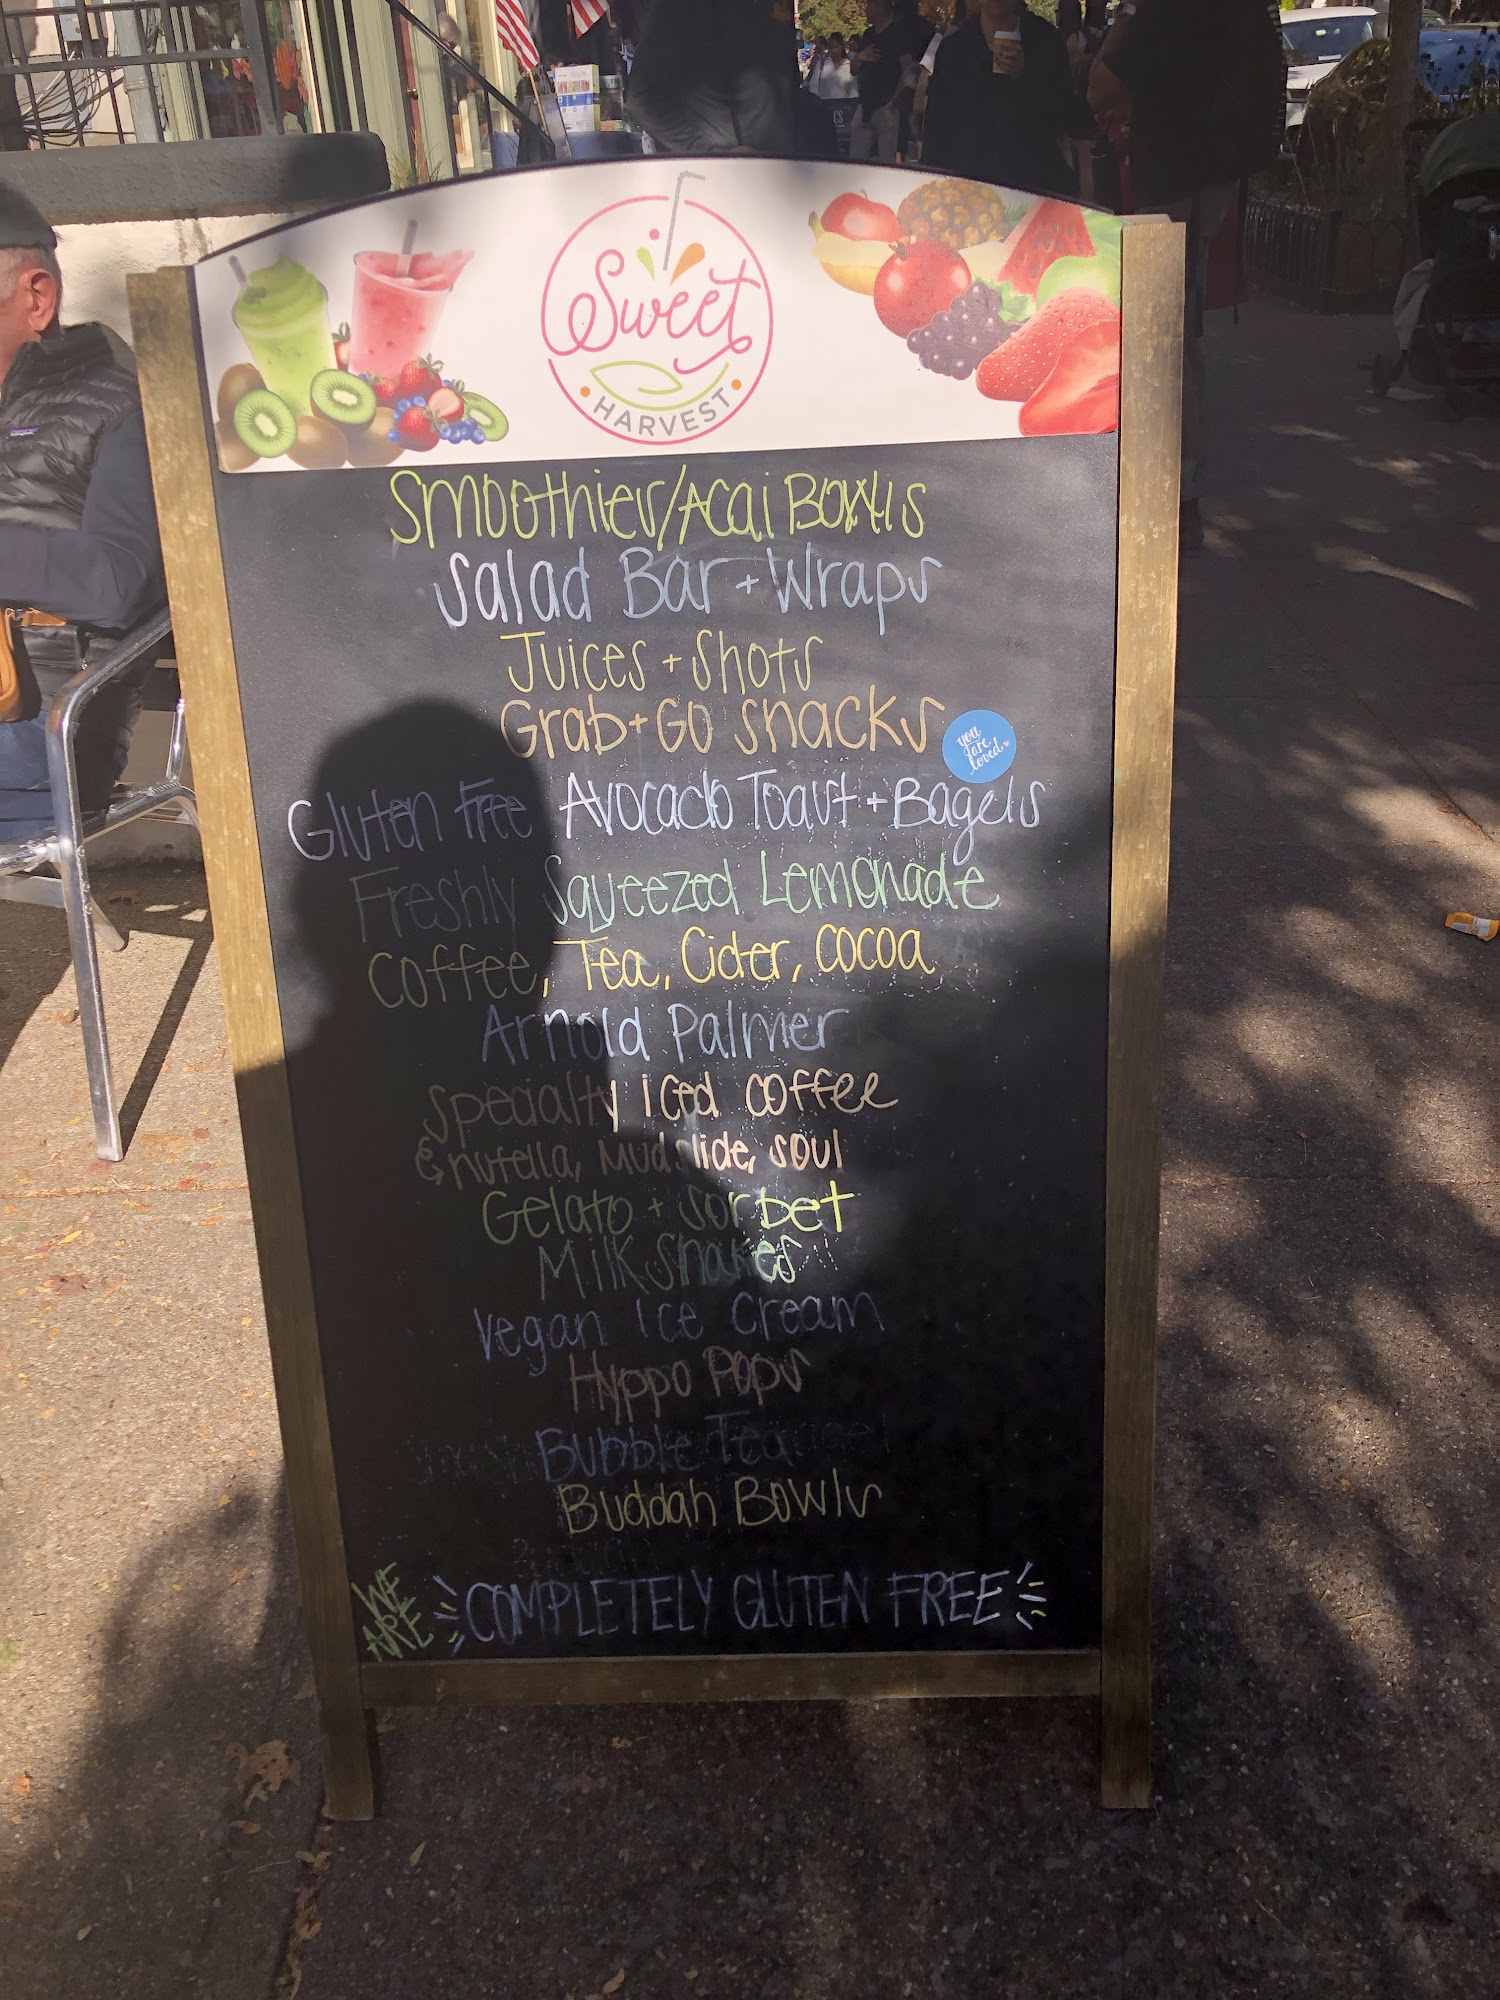 Sweet
HARVEST
Smoothies/Acai Bowls
Salad Bar + Wraps
Juices + Shots
Grab + Go snacks
you
are
loved
Gluten Free Avocado Toast + Bagels
Freshly Squeezed Lemonade
Coffee, Tea, Cider, Cocoa
Arnold Palmer
Specialty iced coffee
& nutella, Mudslide, soul
Gelato + sorbet
Milkshakes
Vegan Ice Cream
Hyppo Pops
Bubble Tea
Buddah Bowls
WE
ARE
COMPLETELY GLUTEN FREE